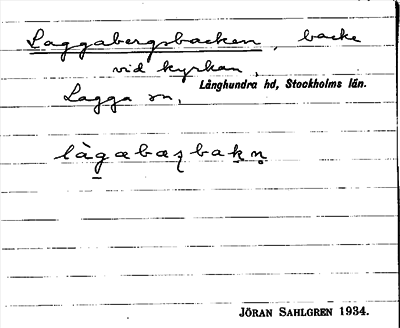 Laggabergsbacken, backe
vid kyrkan,
Långhundra hd, Stockholms län.
Lagga sn,
JÖRAN SAHLGREN 1934.